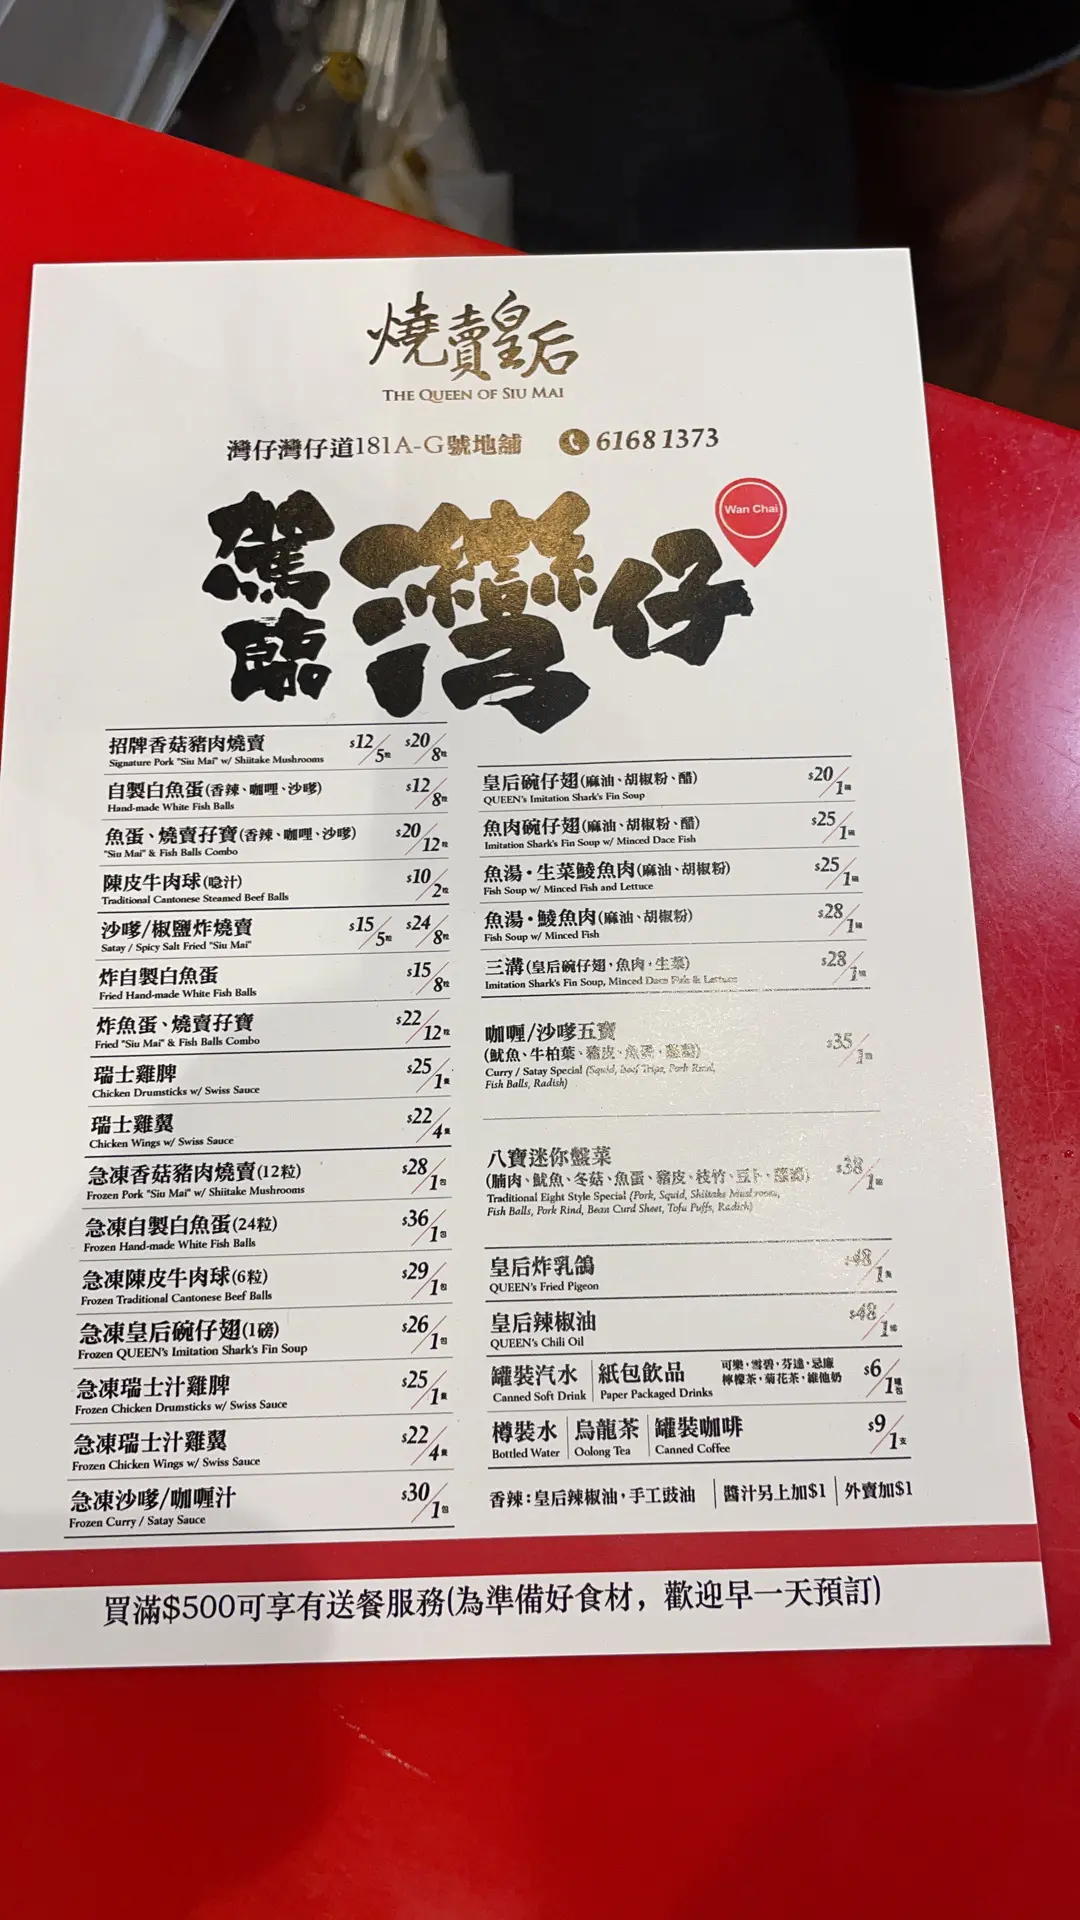 燒賣皇后
THE QUEEN OF SIU MAI
灣仔灣仔道181A-G號地舖 6168 1373
駕臨灣仔
Wan Chai
招牌香菇豬肉燒賣 $12/5粒 $20/8粒
Signature Pork "Siu Mai" w/ Shiitake Mushrooms
自製白魚蛋(香辣、咖喱、沙嗲) $12/8粒
Hand-made White Fish Balls
魚蛋、燒賣孖寶(香辣、咖喱、沙嗲) $20/12粒
"Siu Mai" & Fish Balls Combo
陳皮牛肉球(喼汁) $10/2粒
Traditional Cantonese Steamed Beef Balls
沙嗲/椒鹽炸燒賣 $15/5粒 $24/8粒
Satay / Spicy Salt Fried "Siu Mai"
炸自製白魚蛋 $15/8粒
Fried Hand-made White Fish Balls
炸魚蛋、燒賣孖寶 $22/12粒
Fried "Siu Mai" & Fish Balls Combo
瑞士雞脾 $25/1隻
Chicken Drumsticks w/ Swiss Sauce
瑞士雞翼 $22/4隻
Chicken Wings w/ Swiss Sauce
急凍香菇豬肉燒賣(12粒) $28/1包
Frozen Pork "Siu Mai" w/ Shiitake Mushrooms
急凍自製白魚蛋(24粒) $36/1包
Frozen Hand-made White Fish Balls
急凍陳皮牛肉球(6粒) $29/1包
Frozen Traditional Cantonese Beef Balls
急凍皇后碗仔翅(1磅) $26/1包
Frozen QUEEN's Imitation Shark's Fin Soup
急凍瑞士汁雞脾 $25/1隻
Frozen Chicken Drumsticks w/ Swiss Sauce
急凍瑞士汁雞翼 $22/4隻
Frozen Chicken Wings w/ Swiss Sauce
急凍沙嗲/咖喱汁 $30/1包
Frozen Curry / Satay Sauce
皇后碗仔翅(麻油、胡椒粉、醋) $20/1碗
QUEEN's Imitation Shark's Fin Soup
魚肉碗仔翅(麻油、胡椒粉、醋) $25/1碗
Imitation Shark's Fin Soup w/ Minced Dace Fish
魚湯·生菜鯪魚肉(麻油、胡椒粉) $25/1碗
Fish Soup w/ Minced Fish and Lettuce
魚湯·鯪魚肉(麻油、胡椒粉) $28/1碗
Fish Soup w/ Minced Fish
三溝(皇后碗仔翅,魚肉,生菜) $28/1碗
Imitation Shark's Fin Soup, Minced Dace Fish & Lettuce
咖喱/沙嗲五寶
(魷魚、牛柏葉、豬皮、魚蛋、蘿蔔) $35/1
Curry / Satay Special (Squid, Beef Tripe, Pork Rind,
Fish Balls, Radish)
八寶迷你盤菜
(腩肉、魷魚、冬菇、魚蛋、豬皮、枝竹、豆卜、蘿蔔) $38/1
Traditional Eight Style Special (Pork, Squid, Shiitake Mushroom,
Fish Balls, Pork Rind, Bean Curd Sheet, Tofu Puffs, Radich)
皇后炸乳鴿 $48/1隻
QUEEN's Fried Pigeon
皇后辣椒油 $48/1
QUEEN's Chili Oil
罐裝汽水 紙包飲品 可樂,雪碧,芬達,忌廉 $6/1罐包
Canned Soft Drink Paper Packaged Drinks 檸檬茶,菊花茶,維他奶
樽裝水 烏龍茶 罐裝咖啡 $9/1支
Bottled Water Oolong Tea Canned Coffee
香辣:皇后辣椒油,手工豉油 醬汁另上加$1 外賣加$1
買滿$500可享有送餐服務(為準備好食材，歡迎早一天預訂)